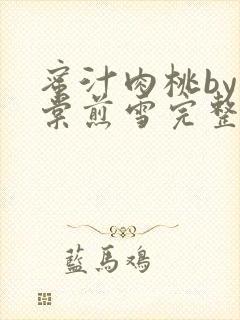 蜜汁肉桃by
棠煎雪完整
藍馬鸡